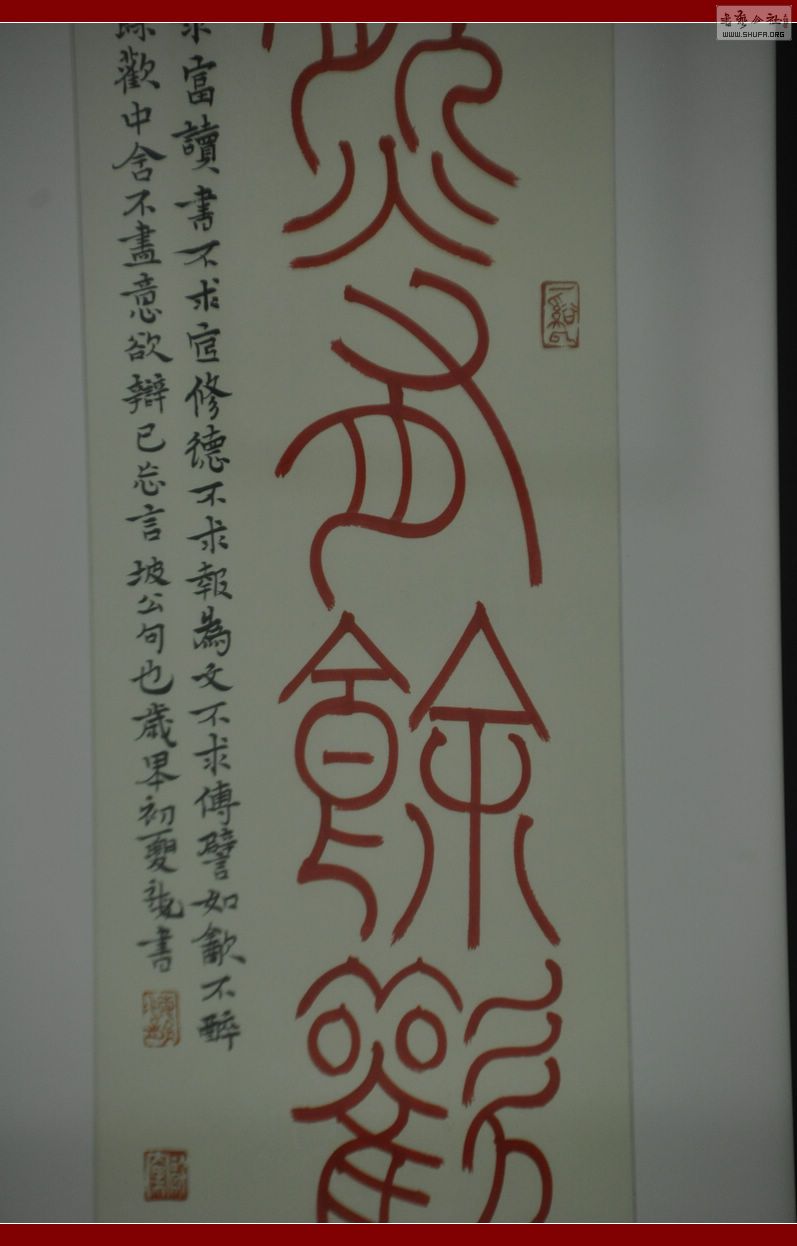 然有餘歡
求富讀書不求官修德不求報為文不求傳譬如㱃不醉
餘歡中含不盡意欲辯已忘言坡公句也歲初夏書
書藝公社
WWW.SHUFA.ORG